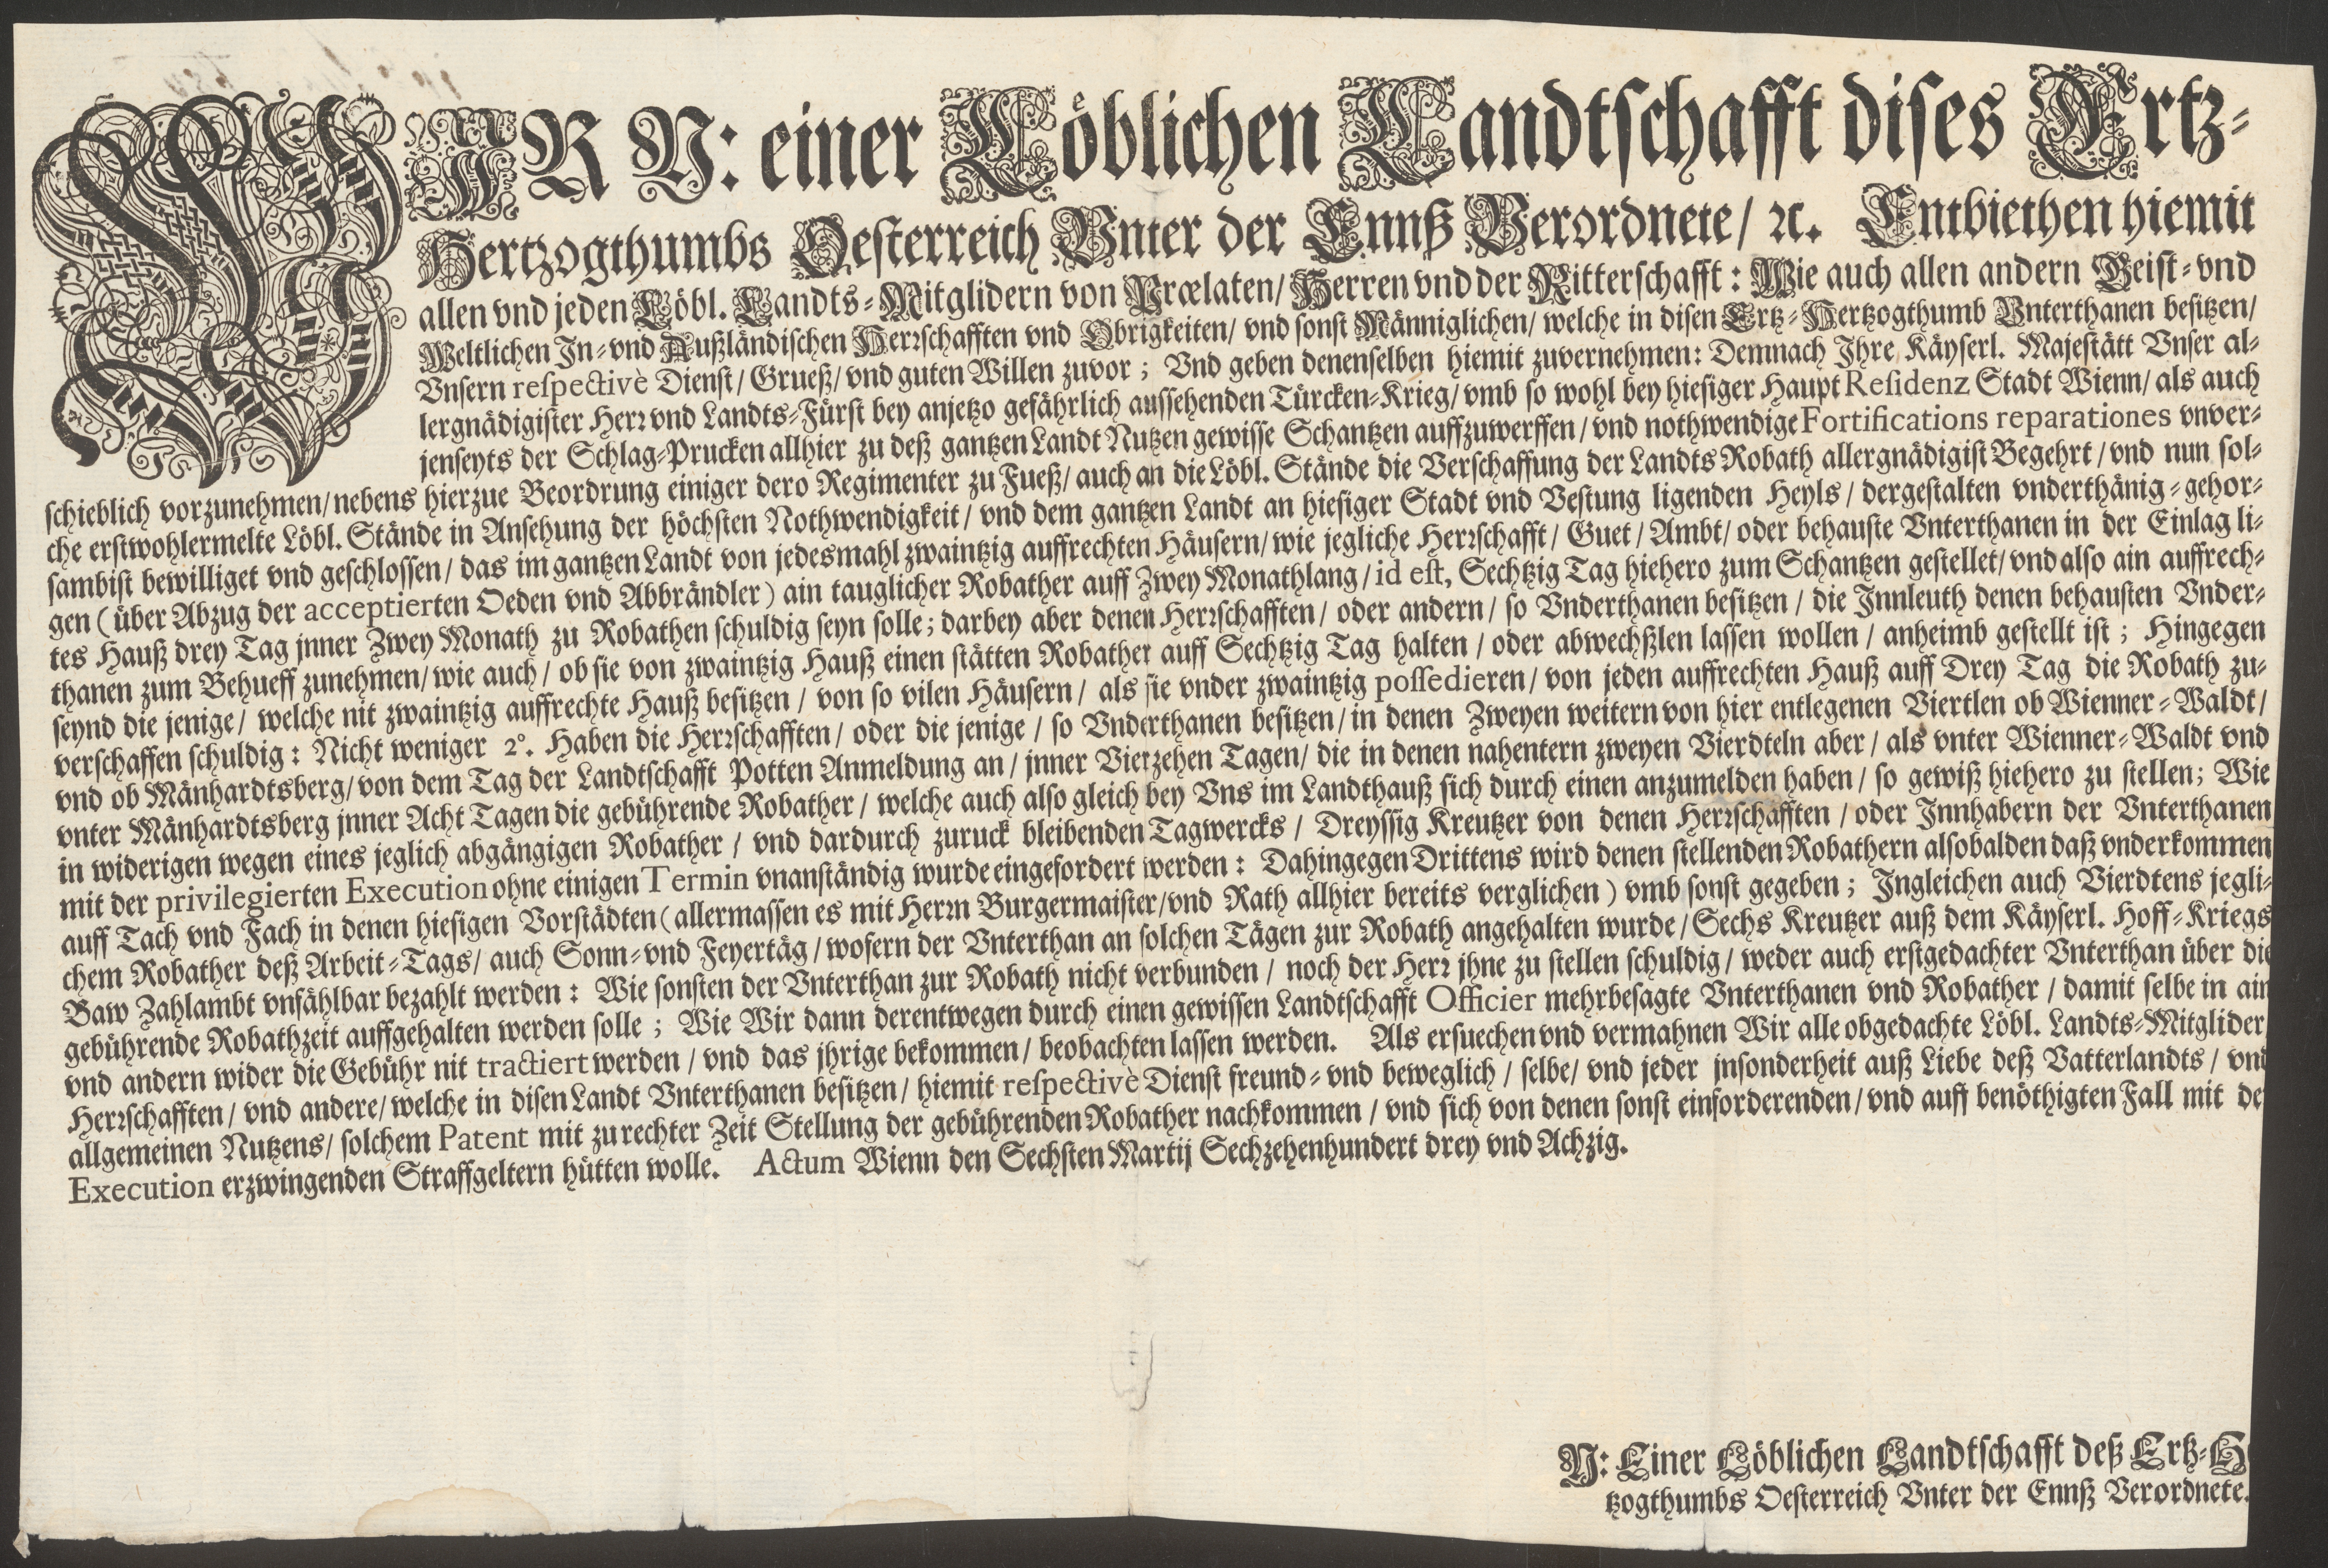 WIR N: einer Löblichen Landtschafft dises Ertz-
Hertzogthumbs Oesterreich Vnter der Ennß Verordnete/ ꝛc. Entbiethen hiemit
allen vnd jeden Löbl. Landts-Mitglidern von Prælaten/ Herren vnd der Ritterschafft: Wie auch allen andern Geist- vnd
Weltlichen In- vnd Außländischen Herꝛschafften vnd Obrigkeiten/ vnd sonst Männiglichen/ welche in disen Ertz-Hertzogthumb Vnterthanen besitzen/
Vnsern respectivè Dienst/ Grueß/ vnd guten Willen zuvor; Vnd geben denenselben hiemit zuvernehmen: Demnach Ihre Käyserl. Majestätt Vnser al-
lergnädigister Herꝛ vnd Landts-Fürst bey anjetzo gefährlich aussehenden Türcken-Krieg/ vmb so wohl bey hiesiger Haupt Residenz Stadt Wienn/ als auch
jenseyts der Schlag-Prucken allhier zu deß gantzen Landt Nutzen gewisse Schantzen auffzuwerffen/ vnd nothwendige Fortifications reparationes vnver-
schieblich vorzunehmen/ nebens hierzue Beordrung einiger dero Regimenter zu Fueß/ auch an die Löbl. Stände die Verschaffung der Landts Robath allergnädigist Begehrt/ vnd nun sol-
che erstwohlermelte Löbl. Stände in Ansehung der höchsten Nothwendigkeit/ vnd dem gantzen Landt an hiesiger Stadt vnd Vestung ligenden Heyls/ dergestalten vnderthänig-gehor-
sambist bewilliget vnd geschlossen/ das im gantzen Landt von jedesmahl zwaintzig auffrechten Häusern/ wie jegliche Herꝛschafft/ Guet/ Ambt/ oder behauste Vnterthanen in der Einlag li-
gen (über Abzug der acceptierten Oeden vnd Abbrändler) ain tauglicher Robather auff Zwey Monathlang/ id est, Sechtzig Tag hiehero zum Schantzen gestellet/ vnd also ain auffrech-
tes Hauß drey Tag jnner Zwey Monath zu Robathen schuldig seyn solle; darbey aber denen Herꝛschafften/ oder andern/ so Vnderthanen besitzen/ die Innleuth denen behausten Vnder-
thanen zum Behueff zunehmen/ wie auch/ ob sie von zwaintzig Hauß einen stätten Robather auff Sechtzig Tag halten/ oder abwechßlen lassen wollen/ anheimb gestellt ist; Hingegen
seynd die jenige/ welche nit zwaintzig auffrechte Hauß besitzen/ von so vilen Häusern/ als sie vnder zwaintzig possedieren/ von jeden auffrechten Hauß auff Drey Tag die Robath zu-
verschaffen schuldig: Nicht weniger 2°. Haben die Herꝛschafften/ oder die jenige/ so Vnderthanen besitzen/ in denen Zweyen weitern von hier entlegenen Viertlen ob Wienner-Waldt/
vnd ob Mänhardtsberg/ von dem Tag der Landtschafft Potten Anmeldung an/ jnner Vierzehen Tagen/ die in denen nahentern zweyen Vierdteln aber/ als vnter Wienner-Waldt vnd
vnter Mänhardtsberg jnner Acht Tagen die gebührende Robather/ welche auch also gleich bey Vns im Landthauß sich durch einen anzumelden haben/ so gewiß hiehero zu stellen; Wie
in widerigen wegen eines jeglich abgängigen Robather/ vnd dardurch zuruck bleibenden Tagwercks/ Dreyssig Kreutzer von denen Herꝛschafften/ oder Innhabern der Vnterthanen
mit der privilegierten Execution ohne einigen Termin vnanständig wurde eingefordert werden: Dahingegen Drittens wird denen stellenden Robathern alsobalden daß vnderkommen
auff Tach vnd Fach in denen hiesigen Vorstädten (allermassen es mit Herrn Burgermaister/ vnd Rath allhier bereits verglichen) vmb sonst gegeben; Ingleichen auch Vierdtens jegli-
chem Robather deß Arbeit-Tags/ auch Sonn- vnd Feyertäg/ wofern der Vnterthan an solchen Tägen zur Robath angehalten wurde/ Sechs Kreutzer auß dem Käyserl. Hoff-Kriegs
Baw Zahlambt vnfählbar bezahlt werden: Wie sonsten der Vnterthan zur Robath nicht verbunden/ noch der Herꝛ jhne zu stellen schuldig/ weder auch erstgedachter Vnterthan über die
gebührende Robathzeit auffgehalten werden solle; Wie Wir dann derentwegen durch einen gewissen Landtschafft Officier mehrbesagte Vnterthanen vnd Robather/ damit selbe in ain
vnd andern wider die Gebühr nit tractiert werden/ vnd das jhrige bekommen/ beobachten lassen werden. Als ersuechen vnd vermahnen Wir alle obgedachte Löbl. Landts-Mitglider
Herꝛschafften/ vnd andere/ welche in disen Landt Vnterthanen besitzen/ hiemit respectivè Dienst freund- vnd beweglich/ selbe/ vnd jeder jnsonderheit auß Liebe deß Vatterlandts/ vnd
allgemeinen Nutzens/ solchem Patent mit zu rechter Zeit Stellung der gebührenden Robather nachkommen/ vnd sich von denen sonst einforderenden/ vnd auff benöthigten Fall mit de
Execution erzwingenden Straffgeltern hütten wolle. Actum Wienn den Sechsten Martij Sechzehenhundert drey vnd Achzig.
N: Einer Löblichen Landtschafft deß Ertz-H
tzogthumbs Oesterreich Vnter der Ennß Verordnete.